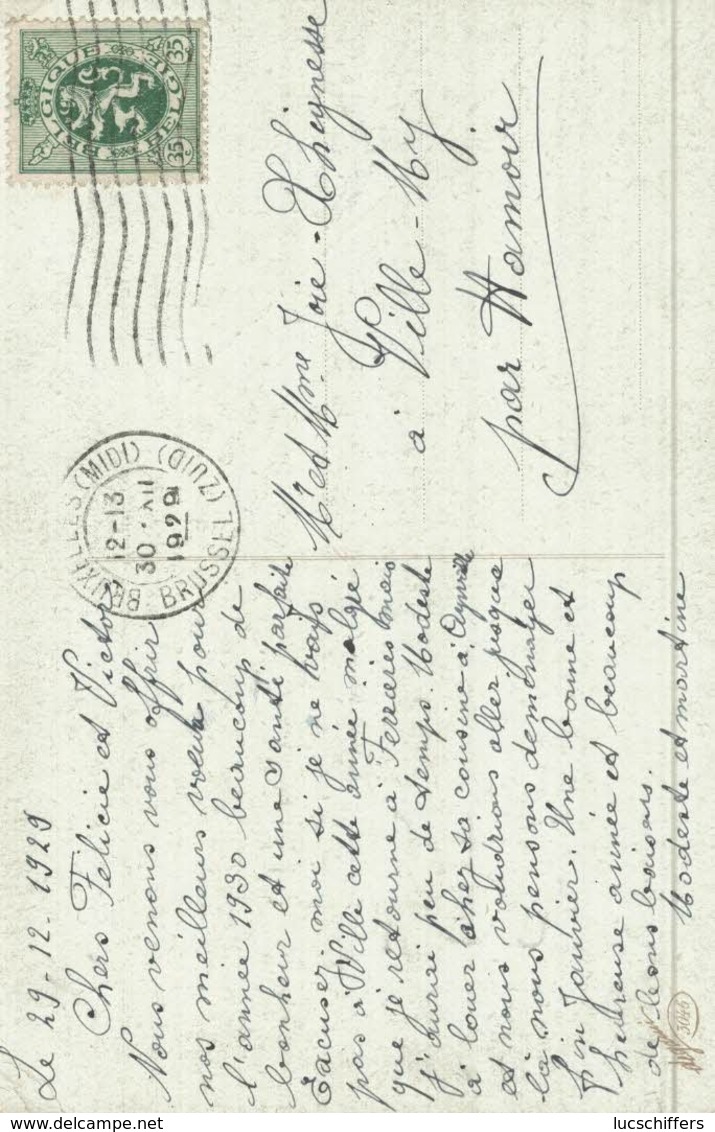 Le 29-12-1929
Chers Félicie et Victor
Nous venons vous offrir
nos meilleurs voeux pour
l'année 1930 beaucoup de
bonheur et une santé parfaite
Excusez moi si je ne vais
pas à Ville cette année malgré
que je retourne à Ferrières mais
j'aurai peu de temps. Modeste
a loué chez sa cousine à
et nous voudrions aller jusque
là nous pensons déménager
fin Janvier. Une bonne et
heureuse année et beaucoup
de bons baisers.
Modeste et martine
Mr et Mme Joie-Theynesse
à Ville-My
par Hamoir
BELGIQUE BELGIE
35c 35c
BRUXELLES (MIDI) (ZUID) BRUSSEL
12-13
30 · XII
1929
3044
delcampe.net
lucschiffers